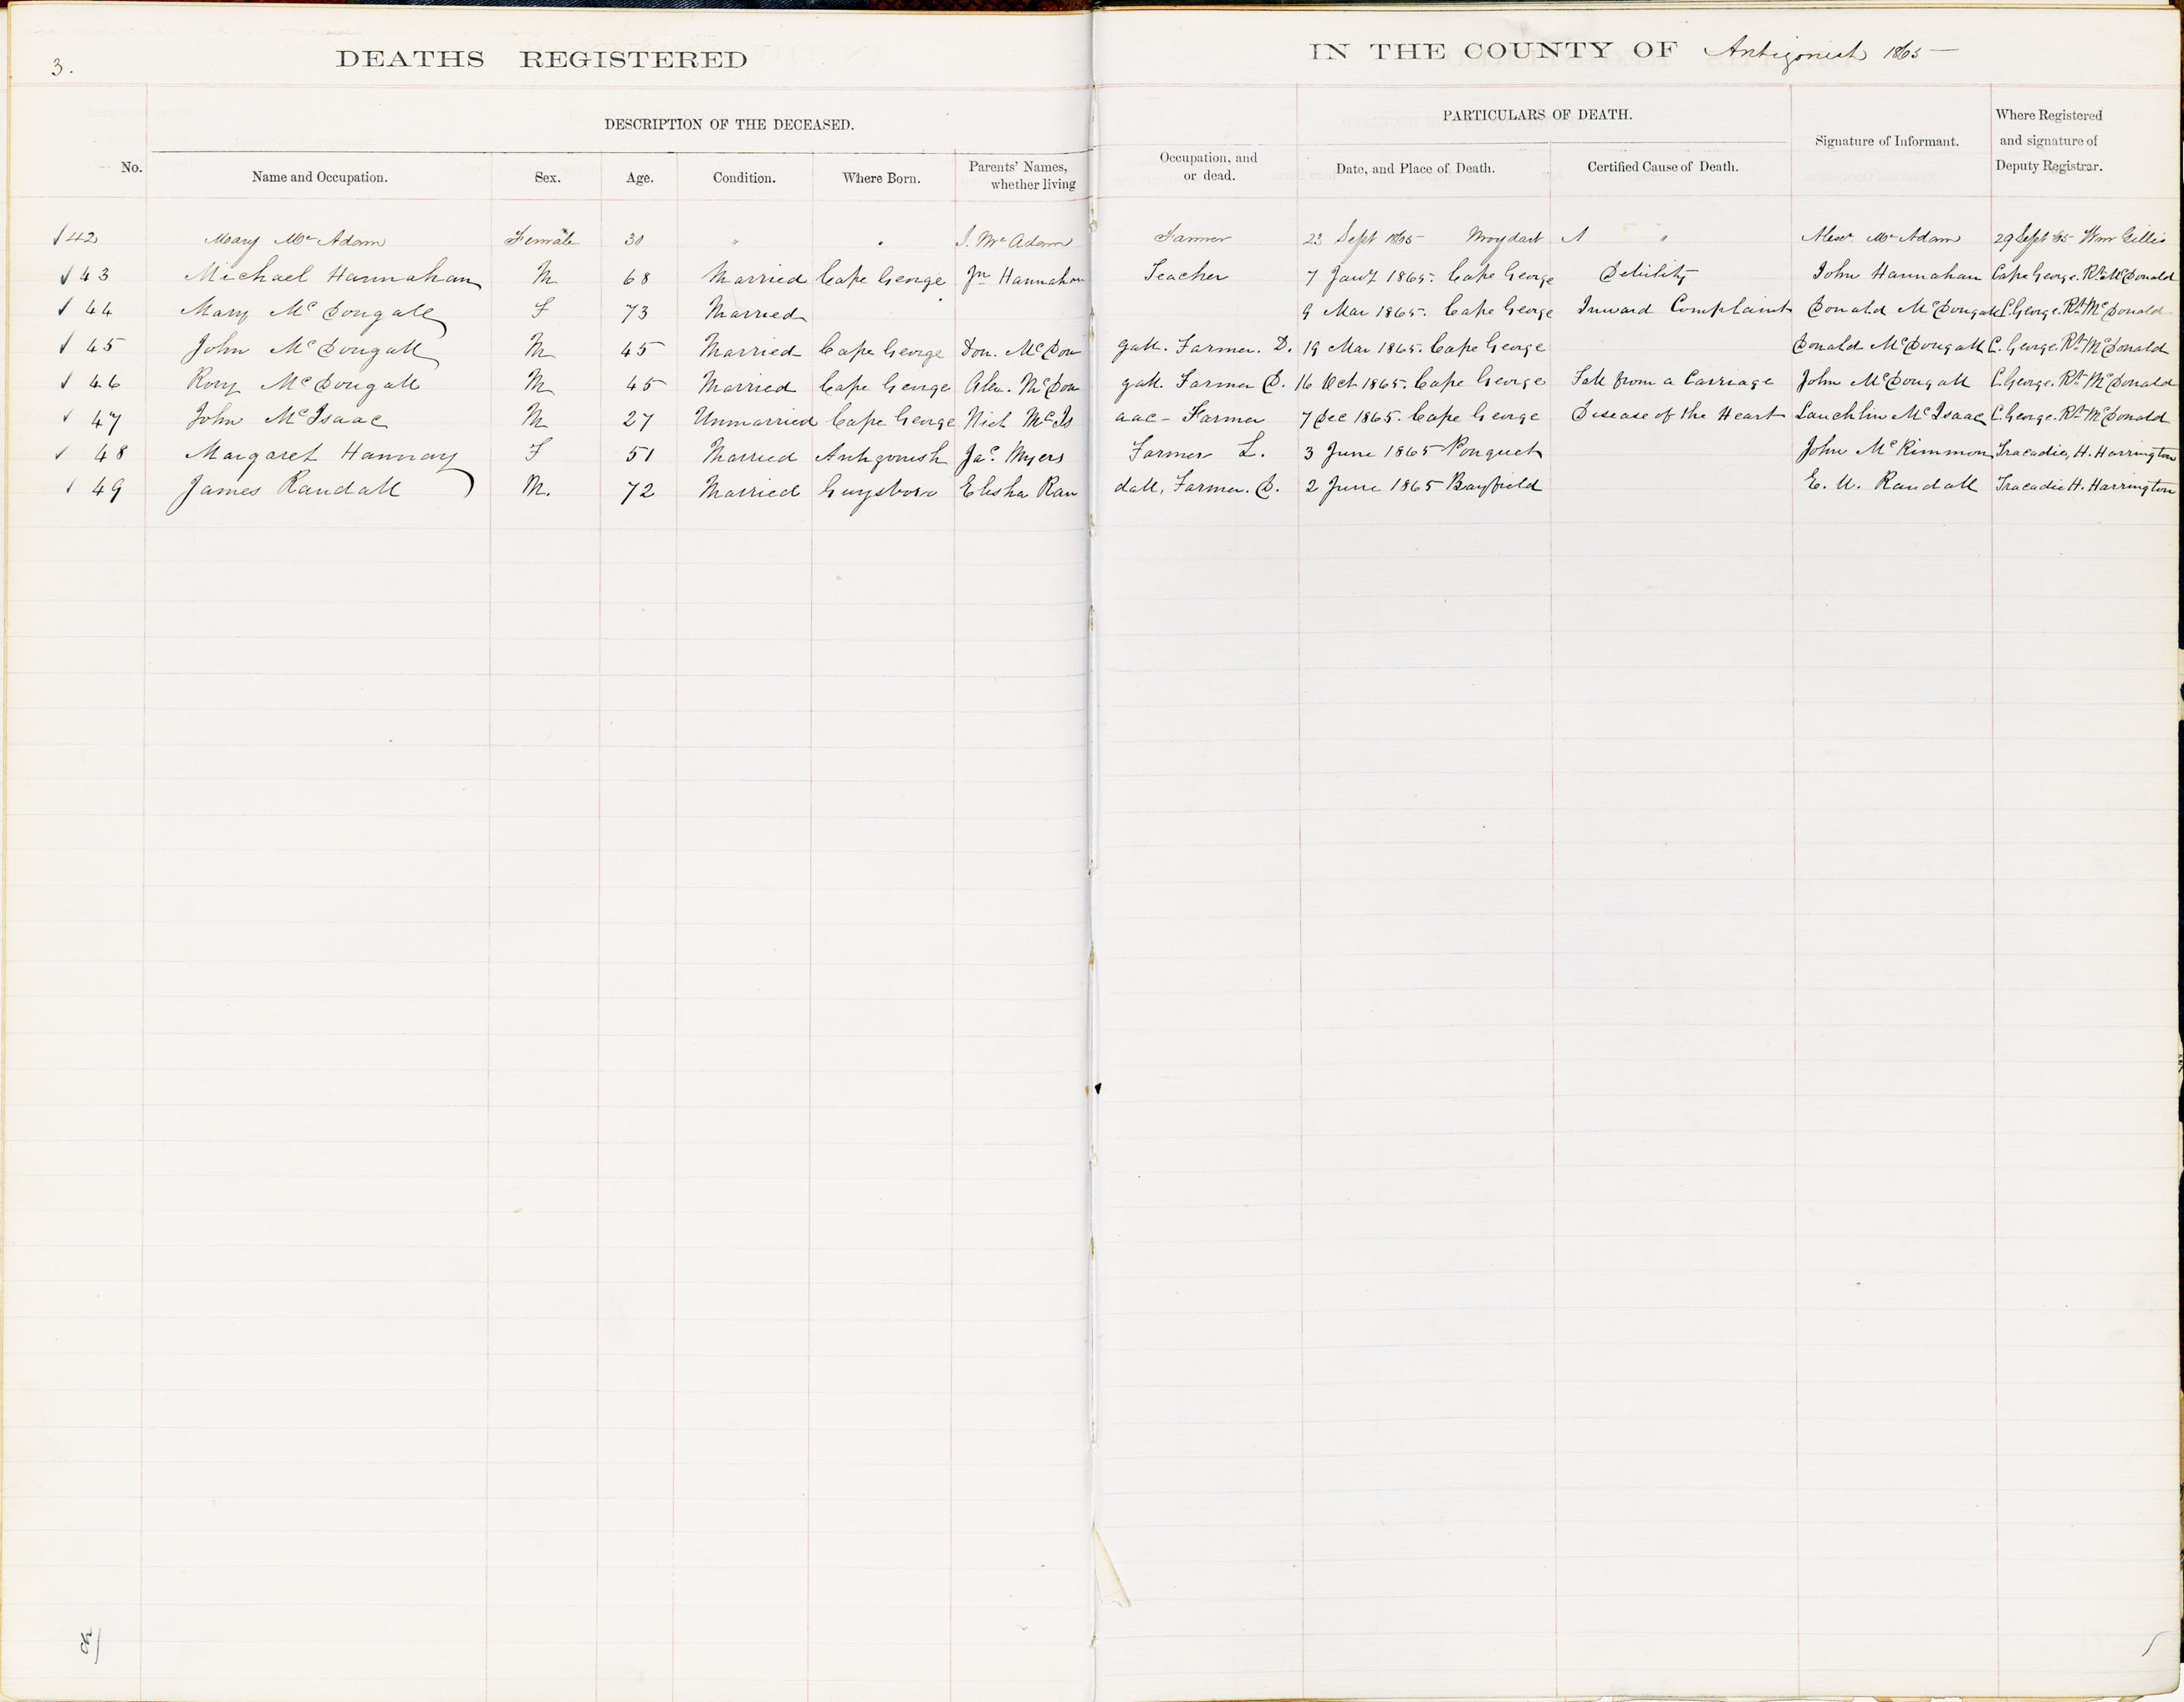 3.
DEATHS REGISTERED IN THE COUNTY OF Antigonish 1865 —
DESCRIPTION OF THE DECEASED. PARTICULARS OF DEATH.
No. Name and Occupation. Sex. Age. Condition. Where Born. Parents' Names, whether living Occupation, and or dead. Date, and Place of Death. Certified Cause of Death. Signature of Informant. Where Registered and signature of Deputy Registrar.
42 Mary Mc Adam Female 30 " " J. Mc Adam Farmer 23 Sept 1865 Moydart " Alexr Mc Adam 29 Sept '65 Wm Gillis
43 Michael Hannahan M 68 Married Cape George Jn Hannahan Teacher 7 Jany 1865. Cape George Debility John Hannahan Cape George. Rt McDonald
44 Mary McDougall F 73 Married 9 Mar 1865. Cape George Inward Complaint Donald McDougall C. George. Rt McDonald
45 John McDougall M 45 Married Cape George Don. McDou gall. Farmer. D. 19 Mar 1865. Cape George Donald McDougall C. George. Rt McDonald
46 Rory McDougall M 45 Married Cape George Alex. McDou gall. Farmer D. 16 Oct 1865. Cape George Fall from a Carriage John McDougall C. George. Rt McDonald
47 John McIsaac M 27 Unmarried Cape George McIs aac - Farmer 7 Dec 1865. Cape George Disease of the Heart Lauchlin McIsaac C. George. Rt McDonald
48 Margaret Hannay F 51 Married Antigonish Jas. Myers Farmer L. 3 June 1865 Pomquet John McKimmon Tracadie, H. Harrington
49 James Randall M. 72 Married Guysboro Elisha Ran dall, Farmer. D. 2 June 1865 Bayfield E. U. Randall Tracadie H. Harrington